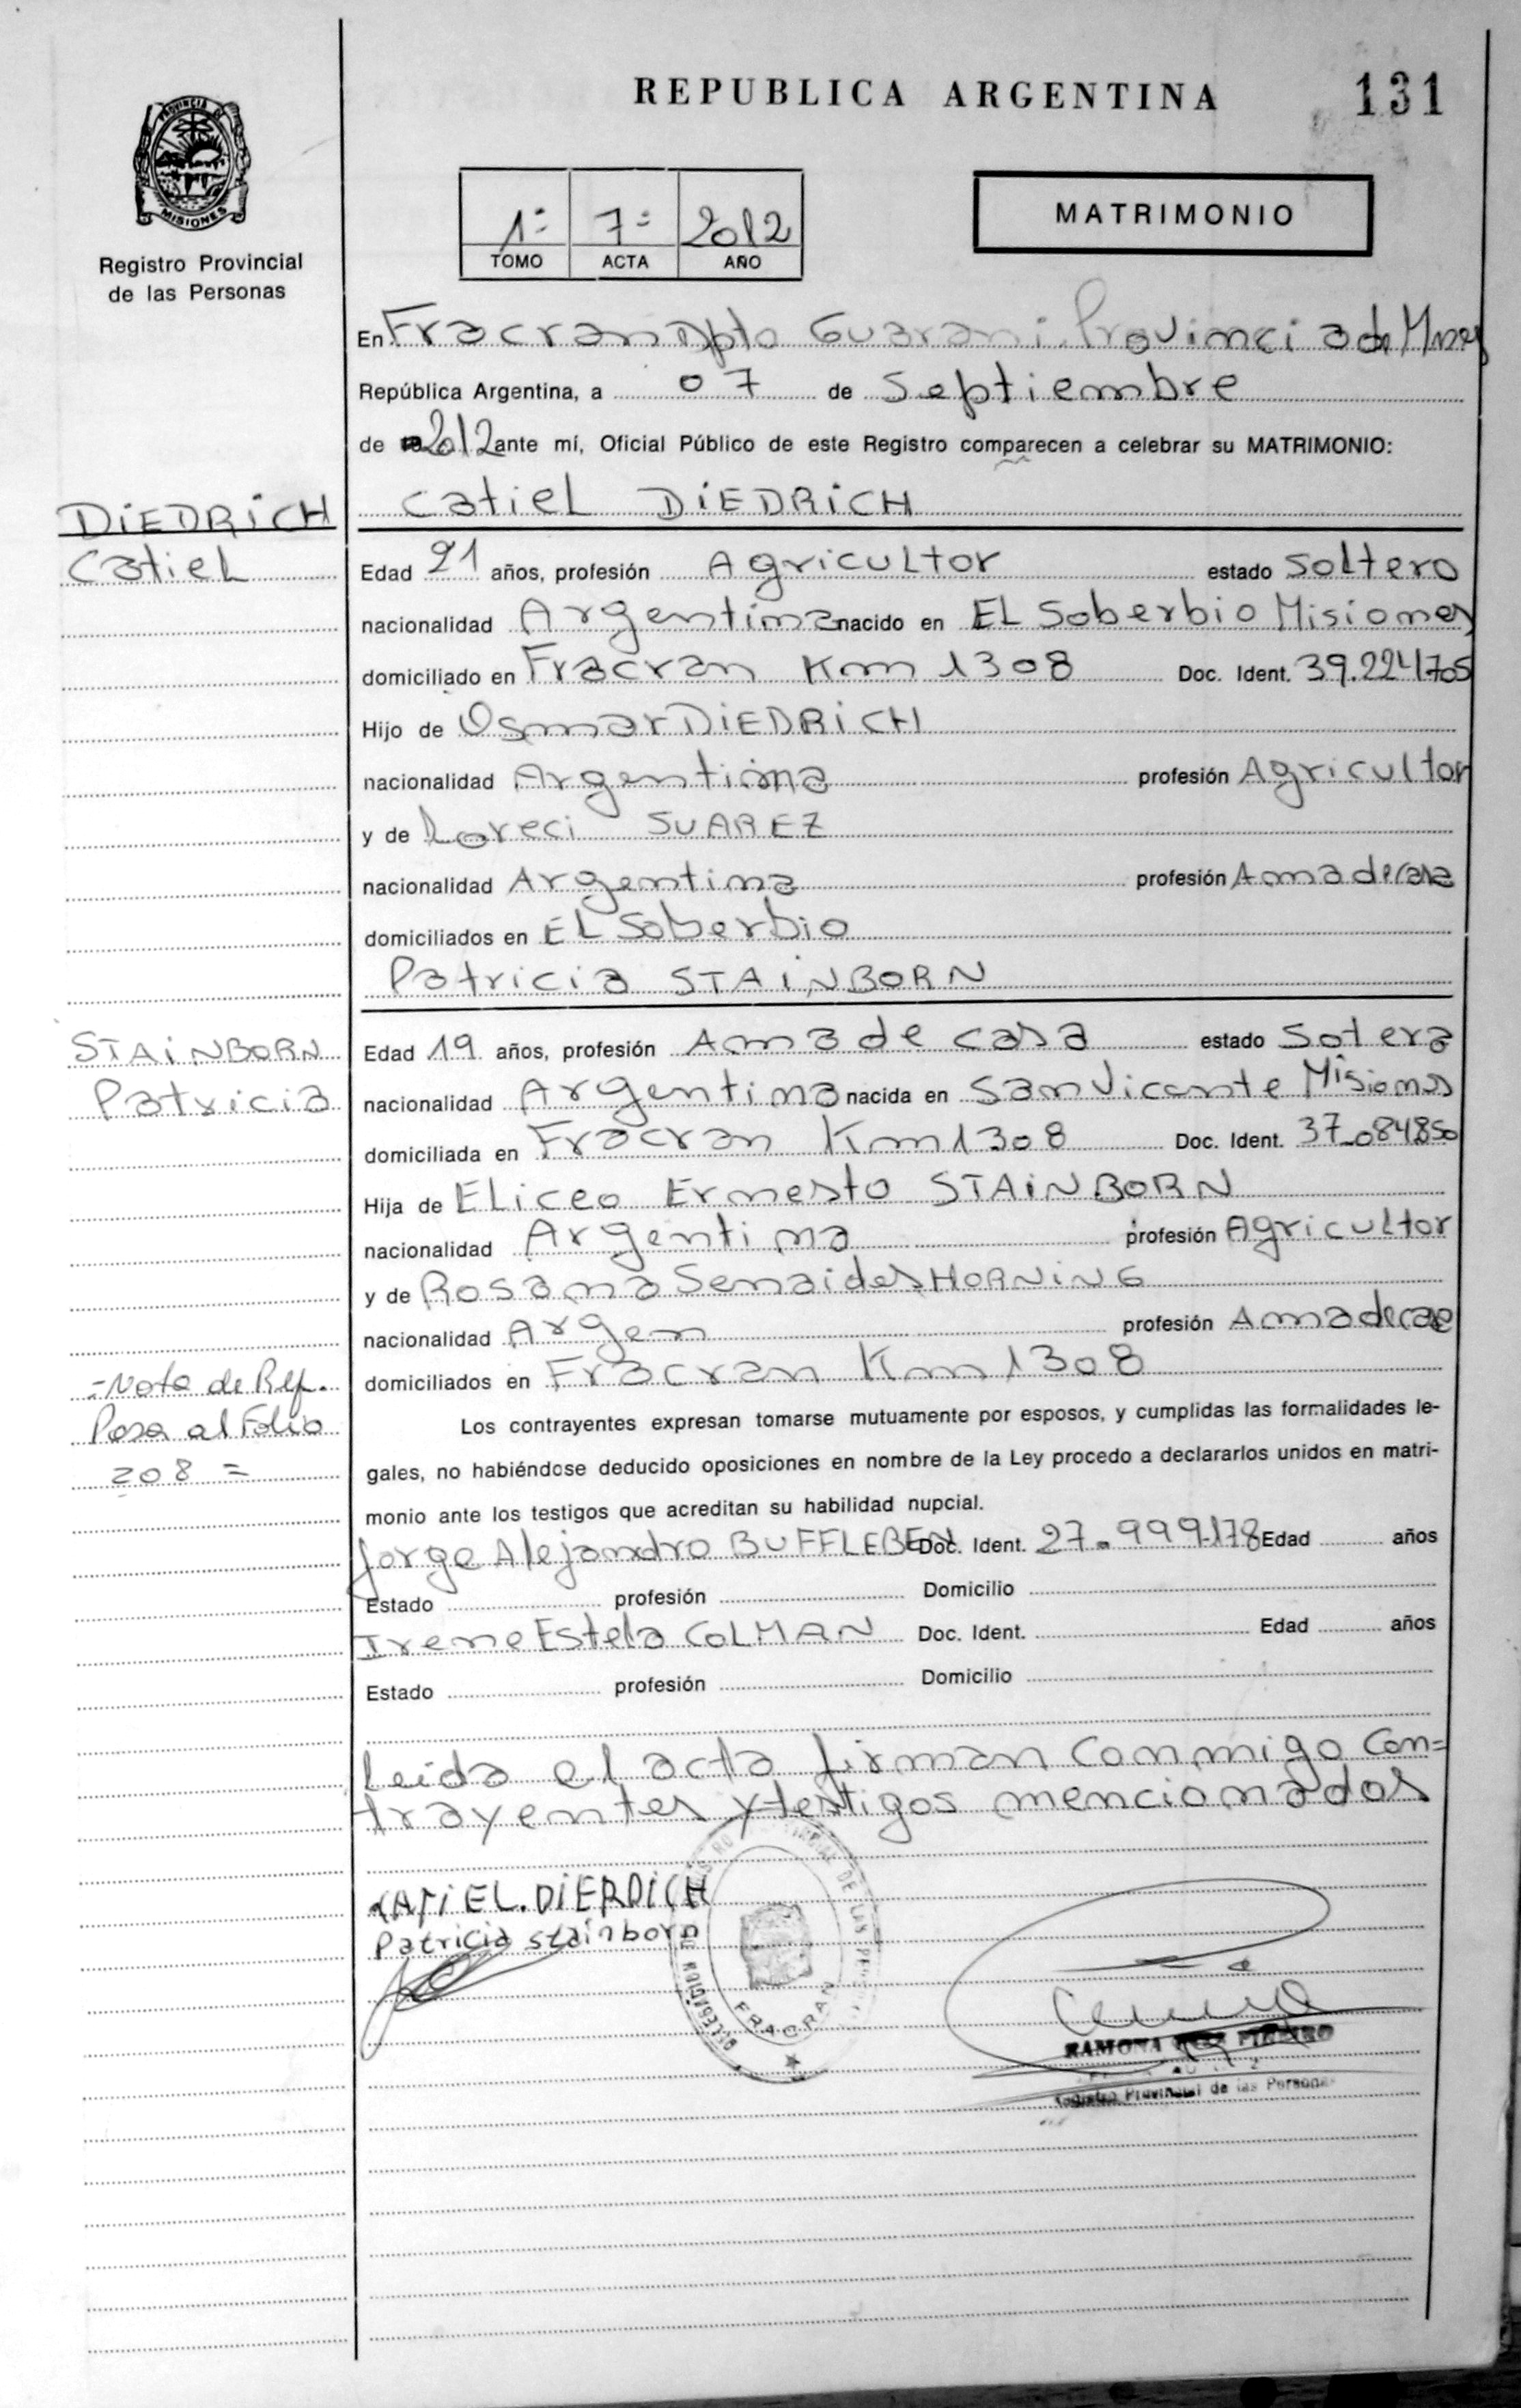 REPUBLICA ARGENTINA
131
PROVINCIA DE
MISIONES
Registro Provincial
de las Personas
1º 7º 2012
TOMO ACTA AÑO
MATRIMONIO
En Fracran Dpto Guarani. Provincia de Mnes
República Argentina, a 07 de Septiembre
de 2012 ante mí, Oficial Público de este Registro comparecen a celebrar su MATRIMONIO:
Catiel DiEDRiCH
DiEDRiCH
Catiel
Edad 21 años, profesión Agricultor estado Soltero
nacionalidad Argentina nacido en EL Soberbio Misiones
domiciliado en Fracran Km 1308 Doc. Ident. 39.224.705
Hijo de Osmar DiEDRiCH
nacionalidad Argentina profesión Agricultor
y de Loreci SUAREZ
nacionalidad Argentina profesión Ama de casa
domiciliados en EL Soberbio
Patricia STAiNBORN
STAiNBORN
Patricia
Edad 19 años, profesión Ama de casa estado Sotera
nacionalidad Argentina nacida en San Vicente Misiones
domiciliada en Fracran Km 1308 Doc. Ident. 37.084.850
Hija de Eliceo Ernesto STAiNBORN
nacionalidad Argentina profesión Agricultor
y de Rosana Senaides HORNiNG
nacionalidad Argen profesión Ama de case
domiciliados en Fracran Km 1308
=Nota de Ref.
Pasa al Folio
208 =
Los contrayentes expresan tomarse mutuamente por esposos, y cumplidas las formalidades le-
gales, no habiéndose deducido oposiciones en nombre de la Ley procedo a declararlos unidos en matri-
monio ante los testigos que acreditan su habilidad nupcial.
Jorge Alejandro BUFFLEBEN Doc. Ident. 27.999.178 Edad años
Estado profesión Domicilio
Irene Estela COLMAN Doc. Ident. Edad años
Estado profesión Domicilio
Leida el acta firman conmigo con=
trayentes y testigos mencionados
CATiEL.DiERDiCH
Patricia Stainborn
DELEGACION DE
DE LAS
FRACRAN
RAMONA
Registro Provincial de las Personas